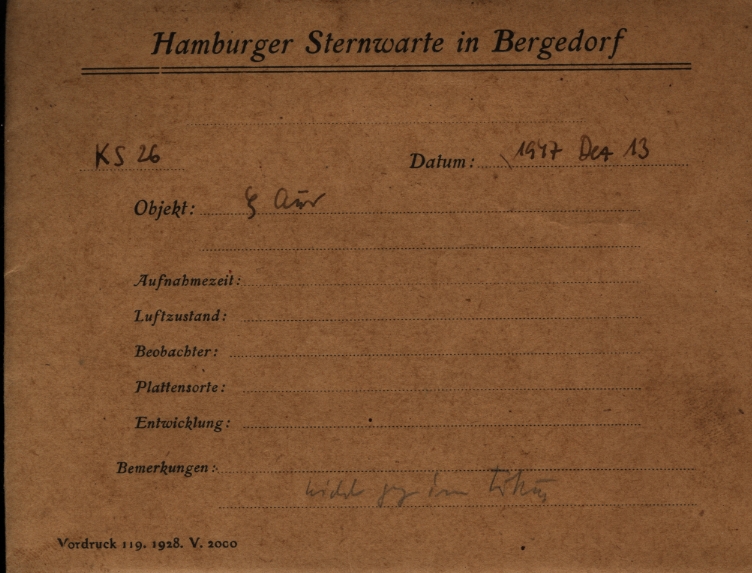 Hamburger Sternwarte in Bergedorf
KS 26
Datum: 1947 Dez 13
Objekt: ζ Aur
Aufnahmezeit:
Luftzustand:
Beobachter:
Plattensorte:
Entwicklung:
Bemerkungen:
Vordruck 119. 1928. V. 2000